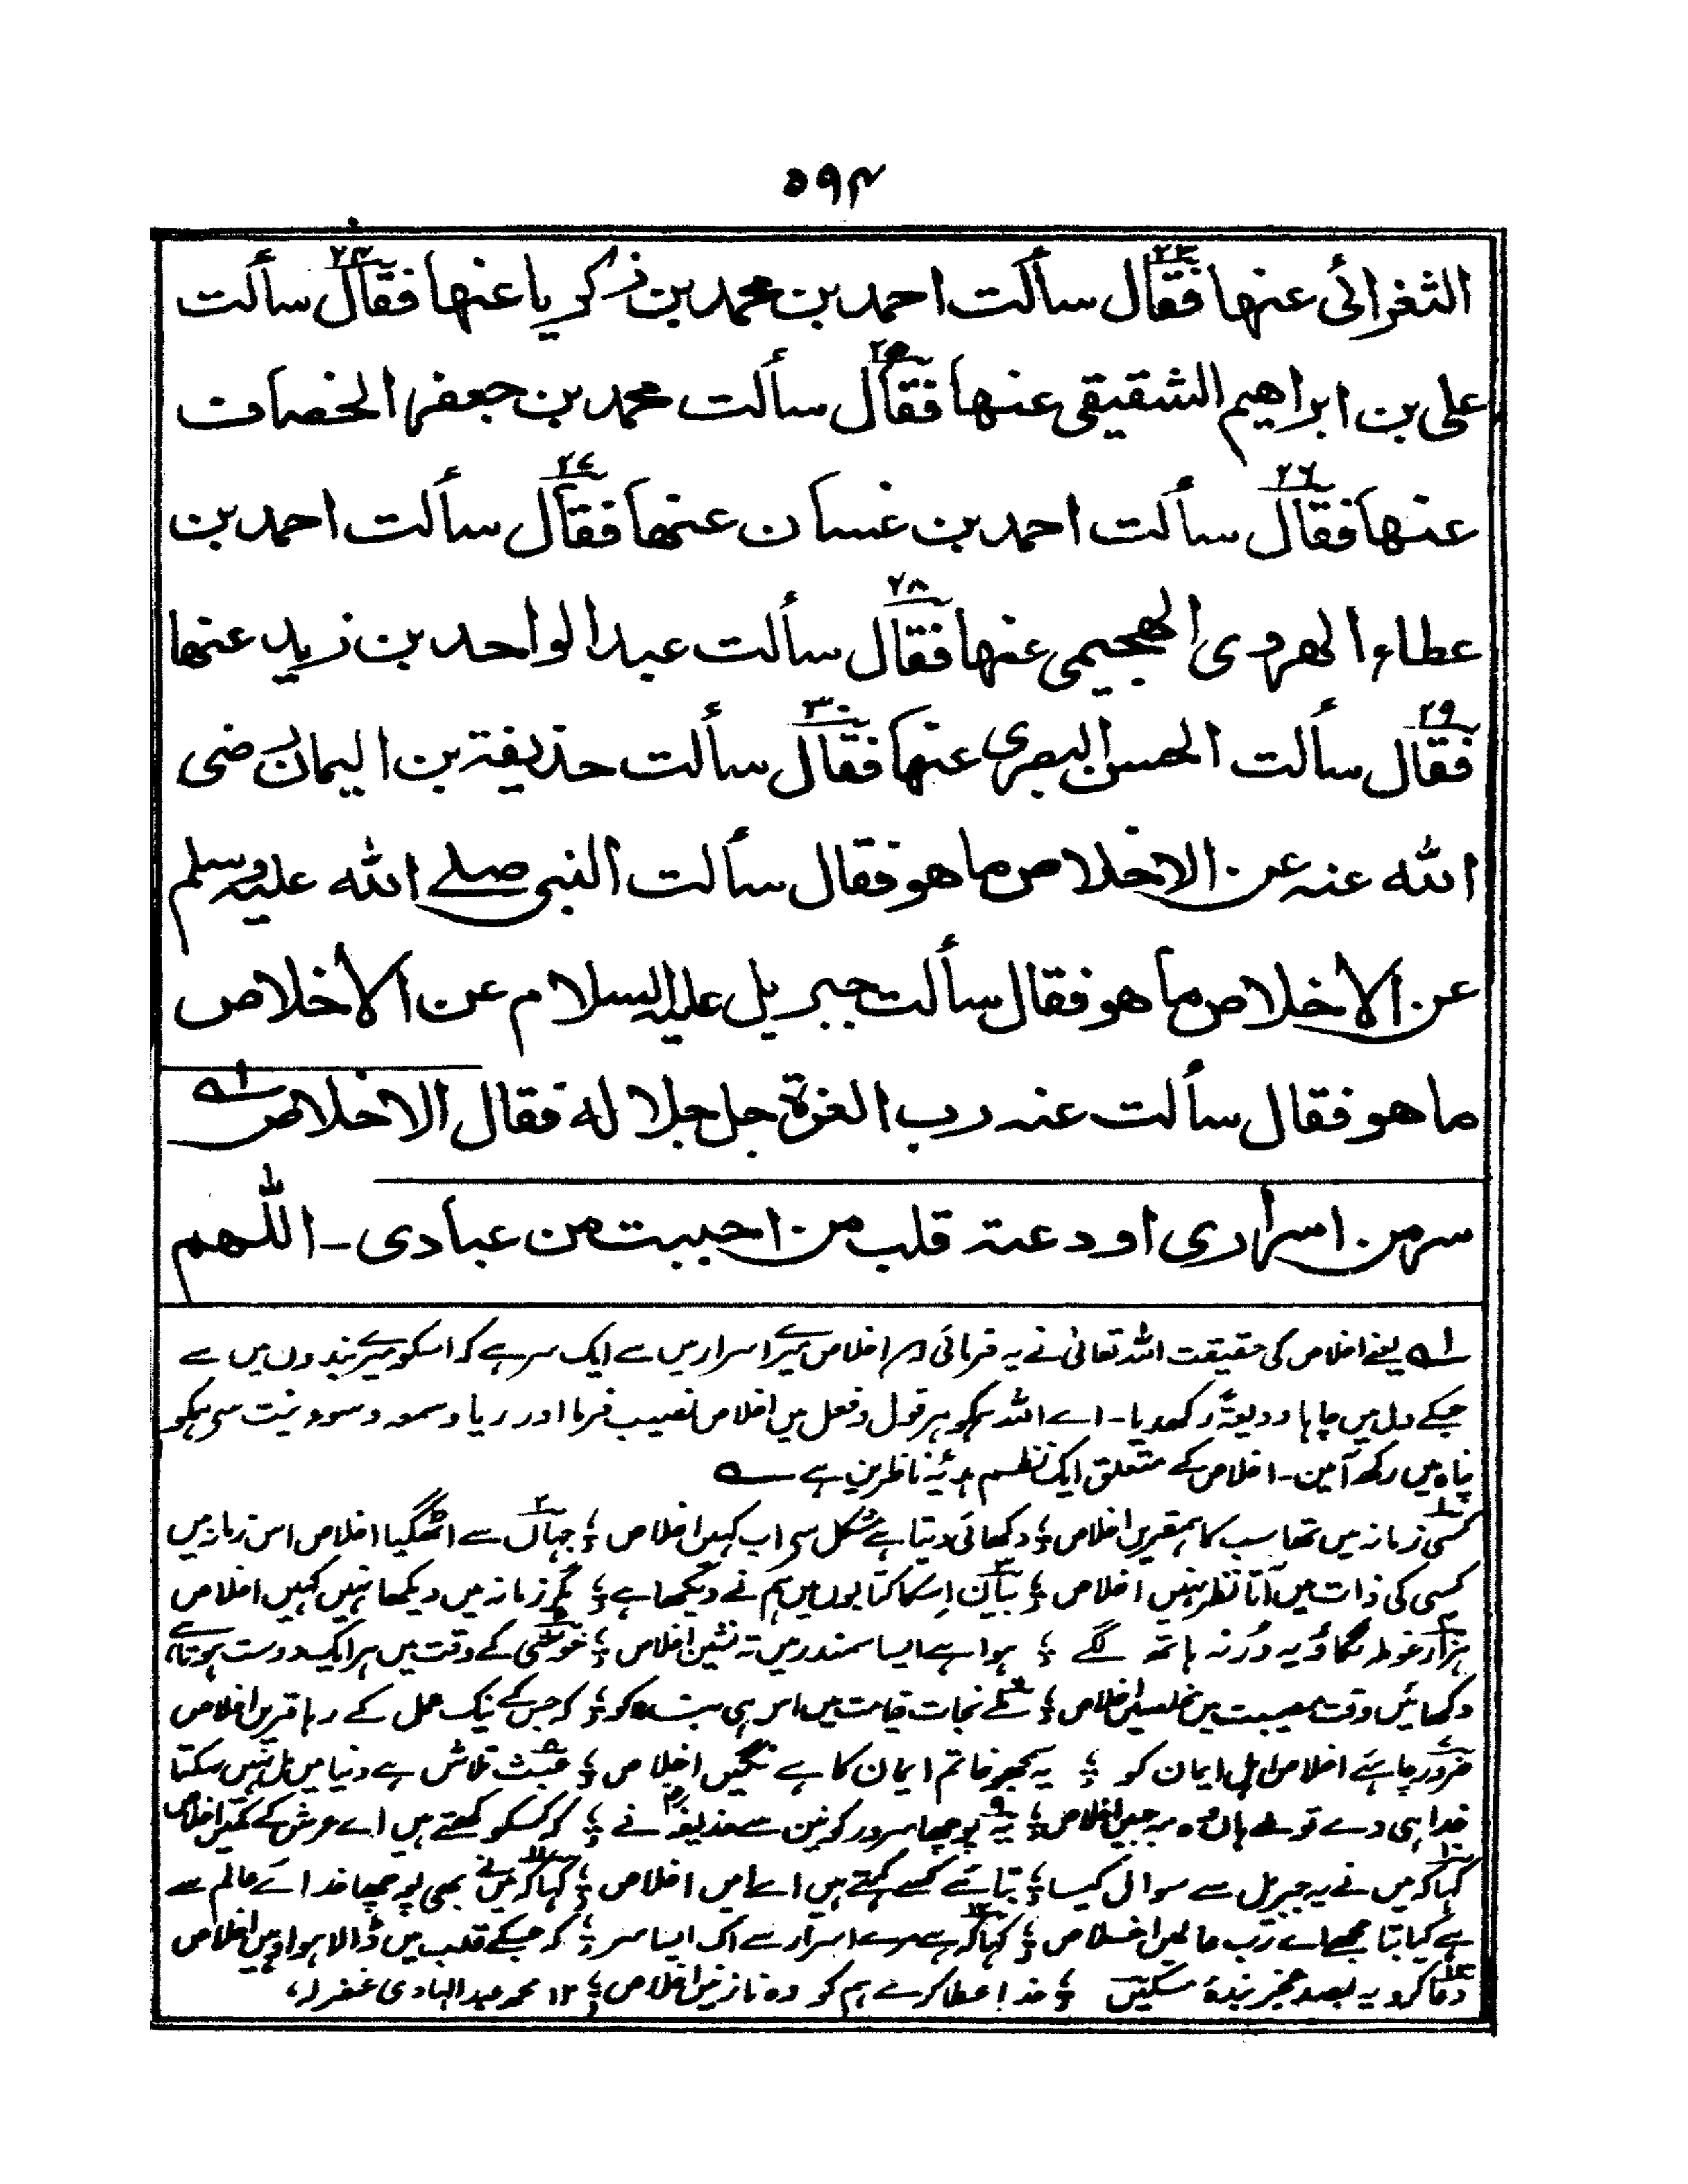 ۵۹۴
الثغرائی عنہا فقال سألت احمد بن محمد بن زکریا عنہا فقال سألت
۲۳ ۲۴
علی بن ابراھیم الشقیقی عنہا فقال سألت محمد بن جعفر الخصاف
۲۵
عنہا فقال سألت احمد بن غسان عنہا فقال سألت احمد بن
۲۶ ۲۷
عطاء الھروی الھجیمی عنہا فقال سألت عبد الواحد بن زید عنہا
۲۸
فقال سألت الحسن البصری عنہا فقال سألت حذیفۃ بن الیمان رضی
۲۹ ۳۰
اللہ عنہ عن الاخلاص ما ھو فقال سألت النبی صلے اللہ علیہ وسلم
عن الاخلاص ما ھو فقال سألت جبریل علیہ السلام عن الاخلاص
ما ھو فقال سألت عنہ رب العزۃ جل جلالہ فقال الاخلاص ۱؎
سر من اسراری اودعتہ قلب من احببت من عبادی ۔ اللھم
۱؎ یعنے اخلاص کی حقیقت اللہ تعالیٰ نے یہ فرمائی اخلاص میرے اسرار میں سے ایک سر ہے کہ اسکو میرے بندون میں سے
جسکے دل میں چاہا ودیعۃً رکھدیا ۔ اے اللہ ہمکو ہر قول و فعل میں اخلاص نصیب فرما اور ریا و سمعہ و سوء نیت سے ہمکو
پناہ میں رکھ آمین ۔ اخلاص کے متعلق ایک نظم ہدیۂ ناظرین ہے ؎
کسی زمانہ میں تھا سب کا ہمقریں اخلاص ؛ دکھائی دیتا ہے مشکل سے اب کہیں اخلاص ؛ جہاں سے اٹھگیا اخلاص اس زمانہ میں
کسی کی ذات میں آتا نظر نہیں اخلاص ؛ بیان اسکا کتابوں میں ہم نے دیکھا ہے ؛ مگر زمانہ میں دیکھا نہیں کہیں اخلاص
ہزار غوطہ لگاؤ یہ دُر نہ ہاتھ لگے ؛ ہوا ہے ایسا سمندر میں تہ نشین اخلاص ؛ خوشی کے وقت میں ہر ایک دوست ہوتا ہے
دکھائیں وقت مصیبت میں مخلصین اخلاص ؛ ملے نجات قیامت میں اس ہی بندہ کو ؛ کہ جس کے نیک عمل کے رہا قریں اخلاص
ضرور چاہئے اخلاص اہل ایمان کو ؛ یہ سمجھو خاتم ایمان کا ہے نگیں اخلاص ؛ عبث تلاش ہے دنیا میں مل نہیں سکتا
خدا ہی دے تو ملے ہاں وہ مہ جبیں اخلاص ؛ یہ پوچھا سرور کونین سے حذیفہ نے ؛ کہ کسکو کہتے ہیں اے عرش کے مکیں اخلاص
کہا کہ میں نے یہ جبریل سے سوال کیا ؛ بتائے کسے کہتے ہیں اے امیں اخلاص ؛ کہا کہ میں نے بھی پوچھا خدائے عالم سے
ہے کیا بتا مجھے اے رب عالمین اخلاص ؛ کہا کہ ہے مرے اسرار سے اک ایسا سر ؛ کہ جسکے قلب میں ڈالا ہوا وہیں اخلاص
دعا کرو یہ بصد عجز بندۂ مسکیں ؛ خدا عطا کرے ہم کو وہ نازنیں اخلاص ؛ ۱۲ محمد عبد الہادی غفر لہ